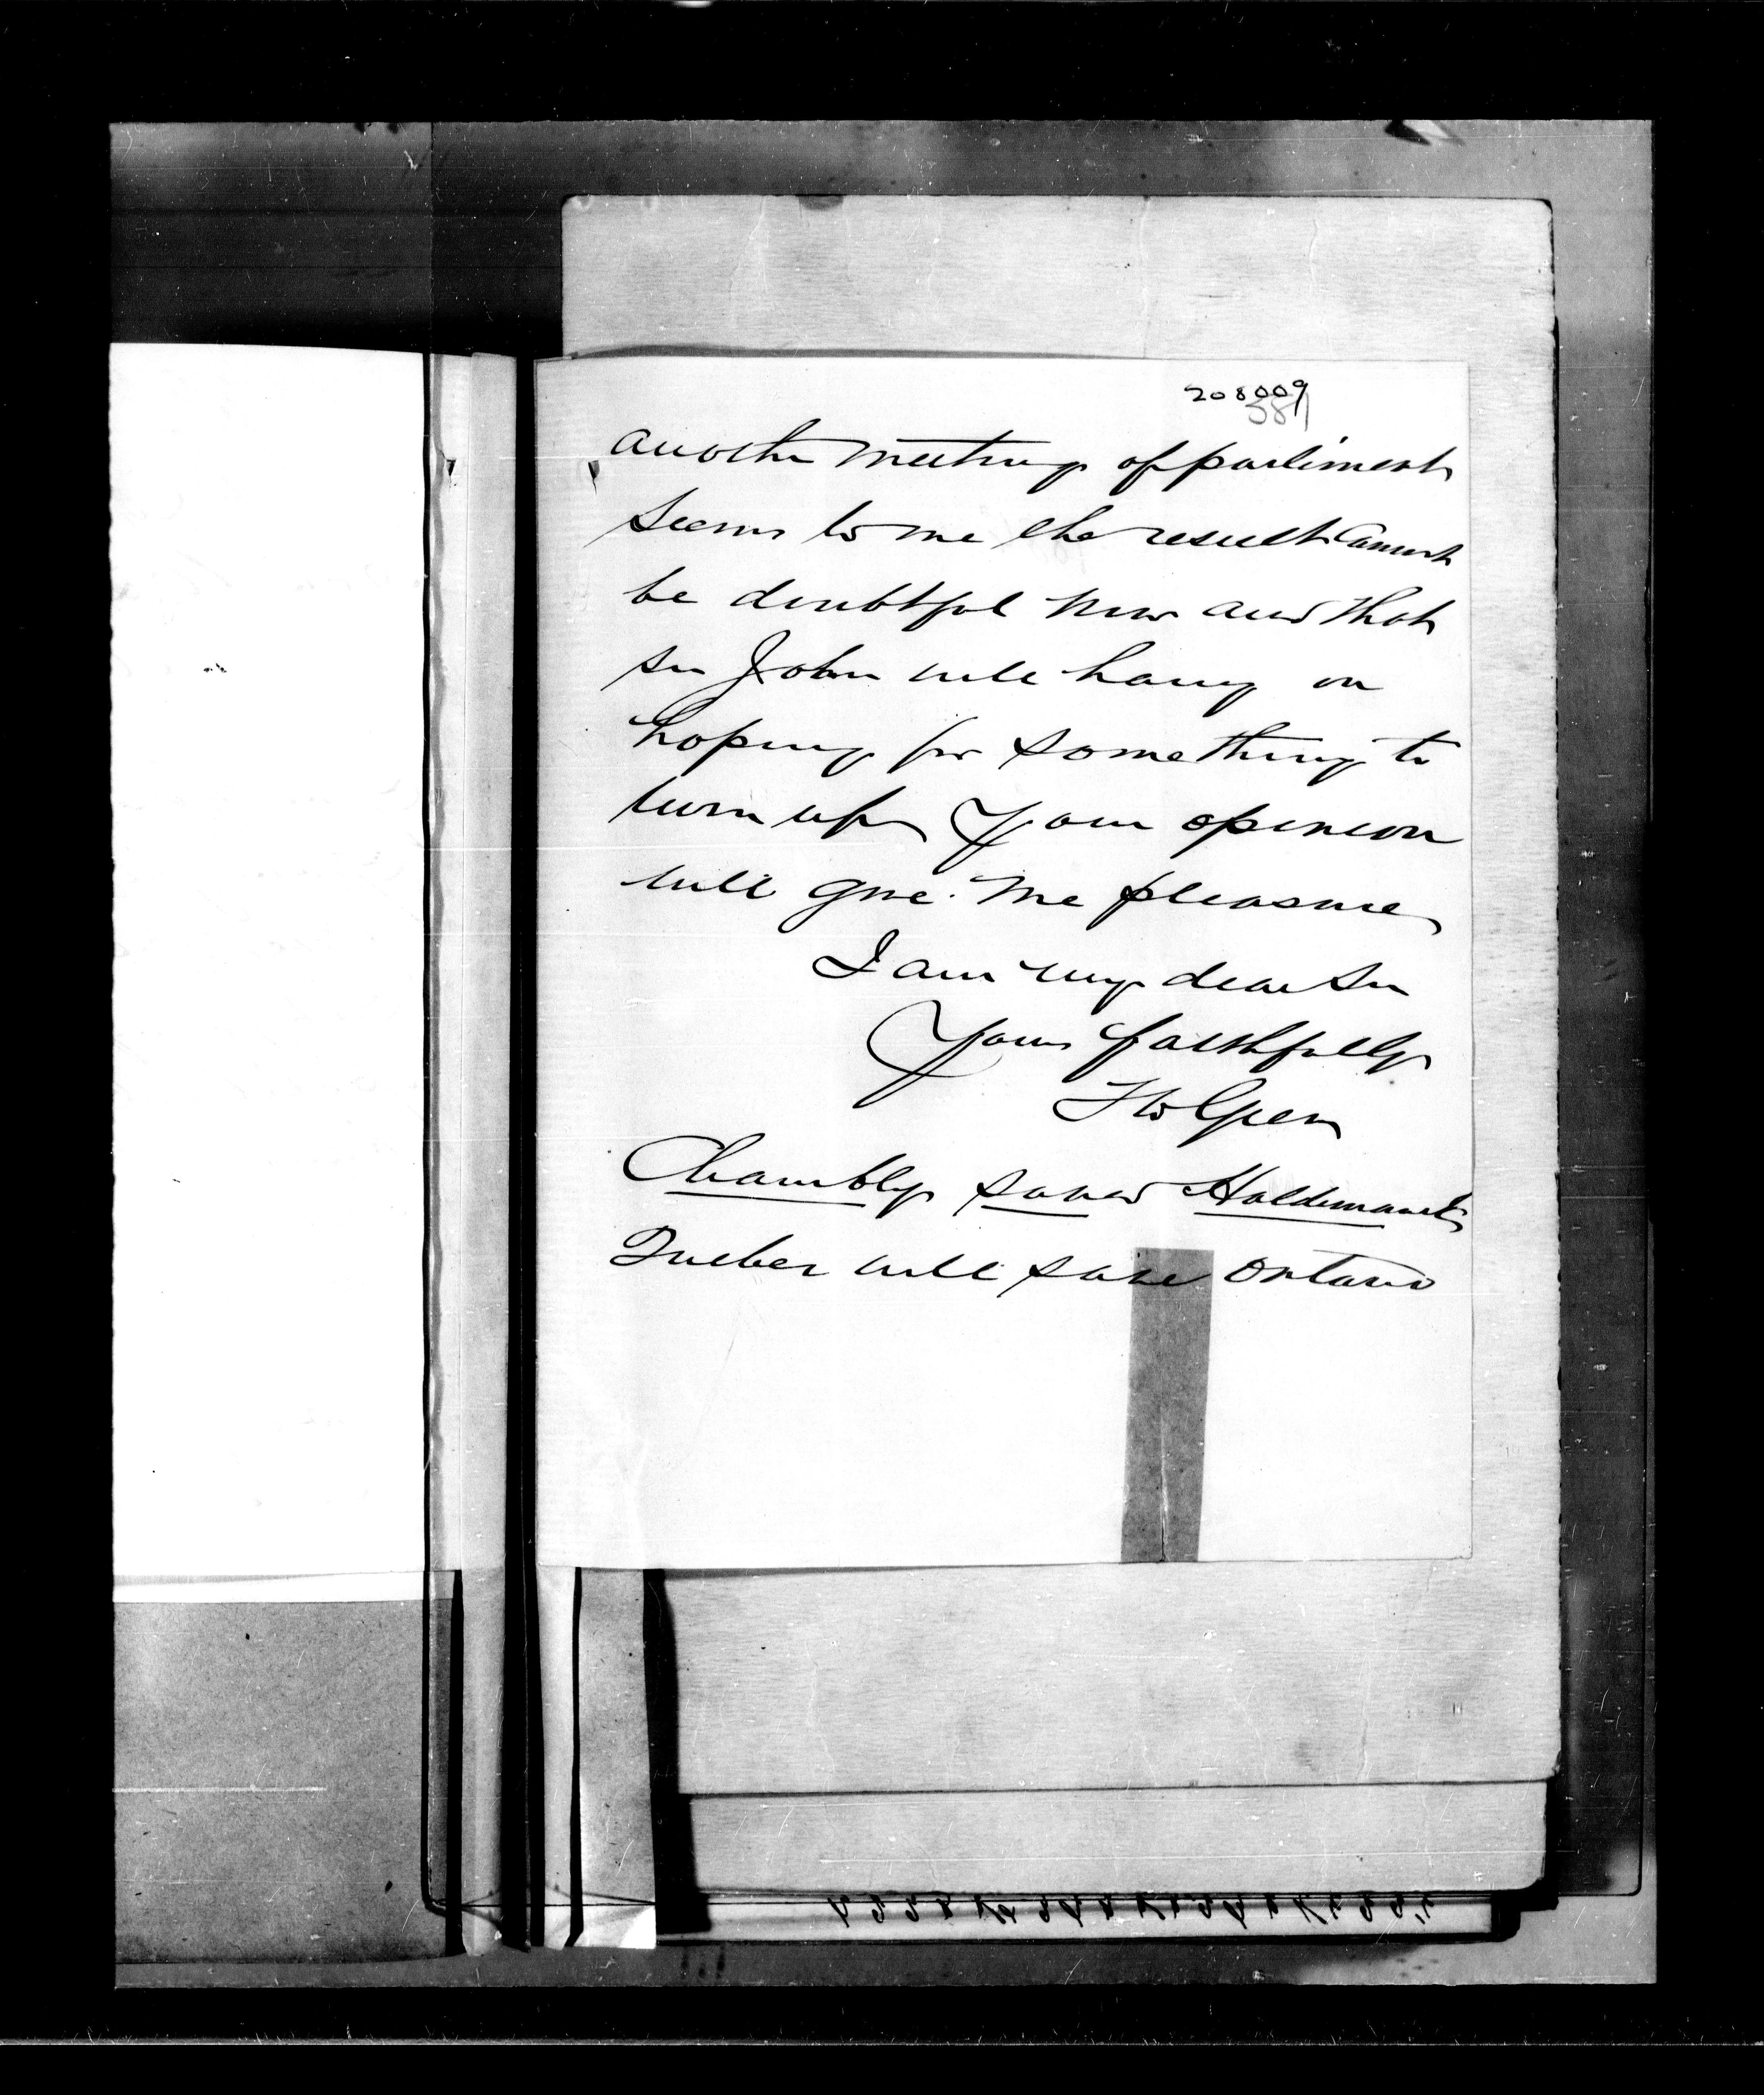 208009
381
another meeting of parliment
seems to me the result cannot
be doubtful now and that
Sir John will hang on
hoping for something to
turn up Your opinion
will give me pleasure
I am my dear Sir
Yours faithfully
Chambly saved Haldimand
Quebec will save Ontario